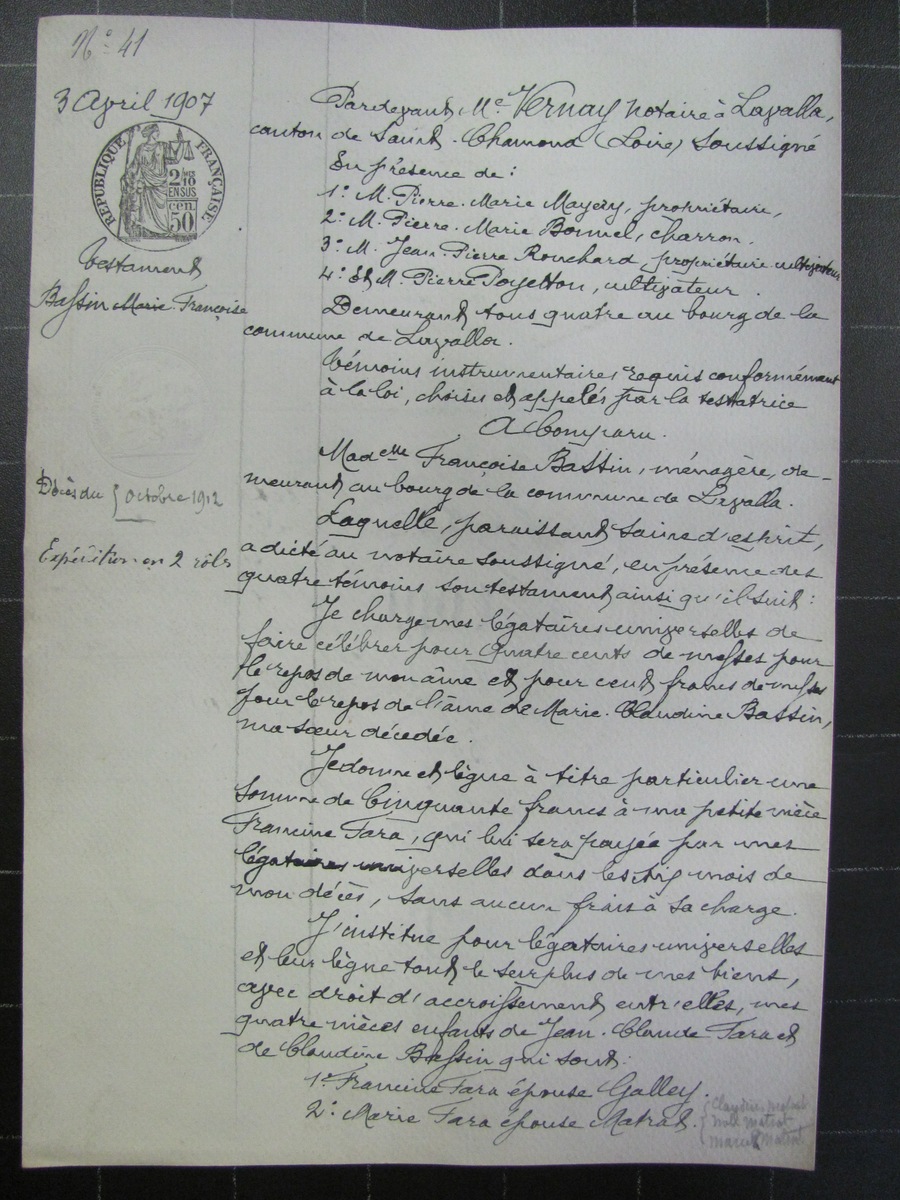 N° 41
3 Avril 1907
RÉPUBLIQUE FRANÇAISE
2/10 EN SUS
50 cen
testament
Bassin Marie Françoise
Décès du 5 octobre 1912
Expédition en 2 rôles
Pardevant Me Vernay notaire à Lavalla,
canton de Saint-Chamond (Loire) soussigné
En présence de :
1° M. Pierre-Marie Mayery, propriétaire,
2° M. Pierre-Marie Bonnel, charron.
3° M. Jean-Pierre Ronchard, propriétaire cultivateur
4° Et M. Pierre Poyetton, cultivateur.
Demeurant tous quatre au bourg de la
commune de Lavalla.
témoins instrumentaires requis conformément
à la loi, choisis et appelés par la testatrice
A comparu.
Madelle Françoise Bassin, ménagère, de-
meurant au bourg de la commune de Lavalla.
Laquelle, paraissant saine d'esprit,
a dicté au notaire soussigné, en présence des
quatre témoins son testament ainsi qu'il suit :
Je charge mes légataires universelles de
faire célébrer pour quatre cents de messes pour
le repos de mon âme et pour cent francs de messes
pour le repos de l'âme de Marie-Claudine Bassin,
ma sœur décédée.
Je donne et lègue à titre particulier une
somme de cinquante francs à ma petite nièce
Francine Fara, qui lui sera payée par mes
légataires universelles dans les six mois de
mon décès, sans aucun frais à sa charge.
J'institue pour légataires universelles
et leur lègue tout le surplus de mes biens,
avec droit d'accroissement entr'elles, mes
quatre nièces enfants de Jean-Claude Fara et
de Claudine Bassin qui sont :
1° Francine Fara épouse Galley.
2° Marie Fara épouse Matrat.
Matrat
Matrat